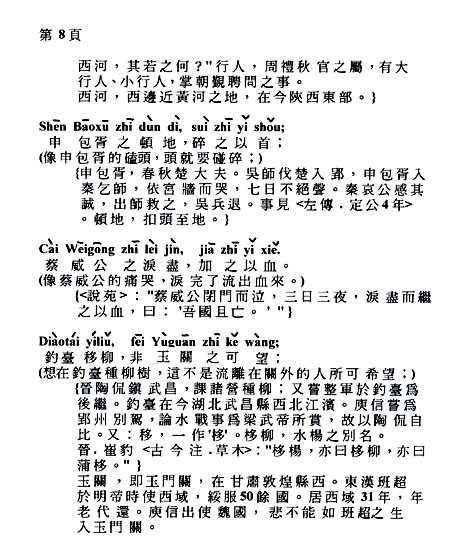 第 8 頁
西河，其若之何？"行人，周禮秋官之屬，有大
行人、小行人，掌朝覲聘問之事。
西河，西邊近黃河之地，在今陝西東部。}
Shēn Bāoxū zhī dùn dì, suì zhī yǐ shǒu;
申 包胥 之 頓 地，碎 之 以 首；
(像申包胥的磕頭，頭就要碰碎；)
{申包胥，春秋楚大夫。吳師伐楚入郢，申包胥入
秦乞師，依宮牆而哭，七日不絕聲。秦哀公感其
誠，出師救之，吳兵退。事見<左傳．定公4年>
。頓地，扣頭至地。}
Cài Wēigōng zhī lèi jìn, jiā zhī yǐ xiě.
蔡 威 公 之 淚 盡，加 之 以 血。
(像蔡威公的痛哭，淚完了流出血來。)
{<說苑>："蔡威公閉門而泣，三日三夜，淚盡而繼
之以血，曰：'吾國且亡。'"}
Diàotái yíliǔ, fēi Yùguān zhī kě wàng;
釣臺 移柳，非 玉關 之 可 望；
(想在釣臺種柳樹，這不是流離在關外的人所可希望；)
{晉陶侃鎮武昌，課諸營種柳；又嘗整軍於釣臺爲
後繼。釣臺在今湖北武昌縣西北江濱。庾信嘗爲
郢州別駕，論水戰事爲梁武帝所賞，故以陶侃自
比。又：移，一作'栘'。栘柳，水楊之別名。
晉．崔豹<古今注．草木>："栘楊，亦曰栘柳，亦曰
蒲栘。"}
玉關，即玉門關，在甘肅敦煌縣西。東漢班超
於明帝時使西域，綏服50餘國。居西域31年，年
老代還。庾信出使魏國，悲不能如班超之生
入玉門關。